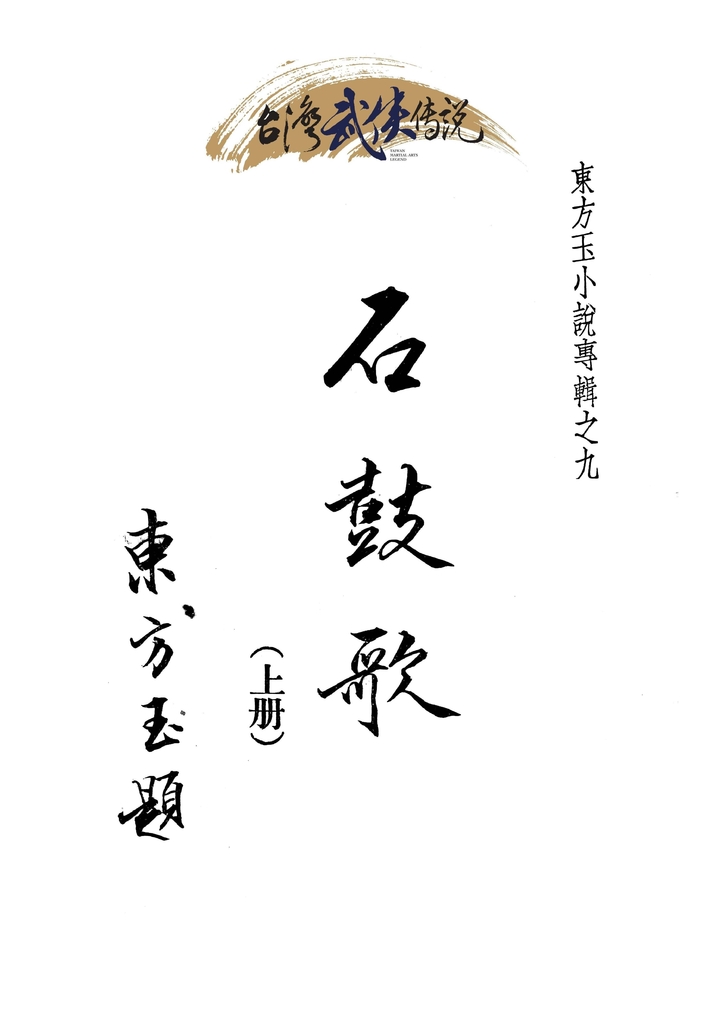 台灣武侠傳説
TAIWAN
MARTIAL ARTS
LEGEND
東方玉小說專輯之九
石鼓歌
（上册）
東方玉題